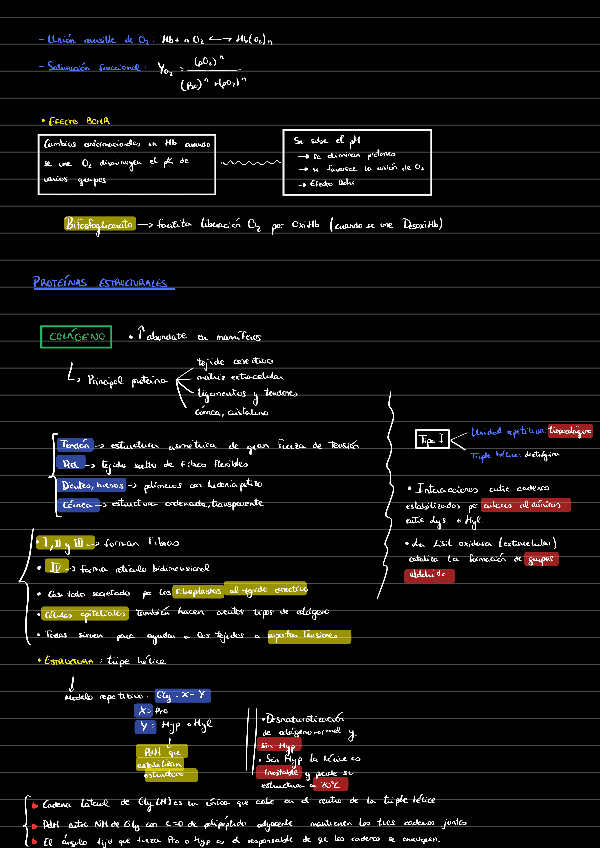 - Unión reversible de O₂: Hb + n O₂ ⟷ Hb(O₂)n
- Saturación fraccional: Y O₂ = (pO₂)^n / (P50)^n + (pO₂)^n
• EFECTO BOHR
Cambios conformacionales en Hb cuando
se une O₂ disminuyen el pK de
varios grupos
Se sube el pH
→ Se eliminan protones
→ se favorece la unión de O₂
→ Efecto Bohr
Bifosfoglicerato → facilita liberación O₂ por OxiHb (cuando se une DesoxiHb)
PROTEÍNAS ESTRUCTURALES
COLÁGENO • ↑ abundante en mamíferos
↳ Principal proteína
tejido conectivo
matriz extracelular
ligamentos y tendones
córnea, cristalino
Tendón → estructura asimétrica de gran fuerza de tensión
Piel → tejido suelto de fibras flexibles
Dientes, huesos → polímeros con hidroxiapatito
Córnea → estructura ordenada, transparente
Tipo I
Unidad repetitiva: tropocolágeno
Triple hélice: dextrógira
• Interacciones entre cadenas
estabilizadas por enlaces aldólicos
entre Lys o Hyl
• La Lisil oxidasa (extracelular)
cataliza la formación de grupos
aldehído
• I, II y III → forman fibras
• IV → forma retículo bidimensional
• Casi todo secretado por los fibroblastos al tejido conectivo
• Células epiteliales también hacen ciertos tipos de colágeno
• Todas sirven para ayudar a los tejidos a soportar tensiones
• ESTRUCTURA: triple hélice
↓
Modelo repetitivo: Gly - X - Y
X = Pro
Y: Hyp o Hyl
↓
PdH que
estabilizan
estructura
• Desnaturalización
de colágeno normal y
sin Hyp
• Sin Hyp la hélice es
inestable y pierde su
estructura a 20ºC
• Cadena lateral de Gly (H) es la única que cabe en el centro de la triple hélice
• PdH entre NH de Gly con C=O de polipéptido adyacente mantienen las tres cadenas juntas
• El ángulo fijo que fuerza Pro o Hyp es el responsable de que las cadenas se enrosquen.